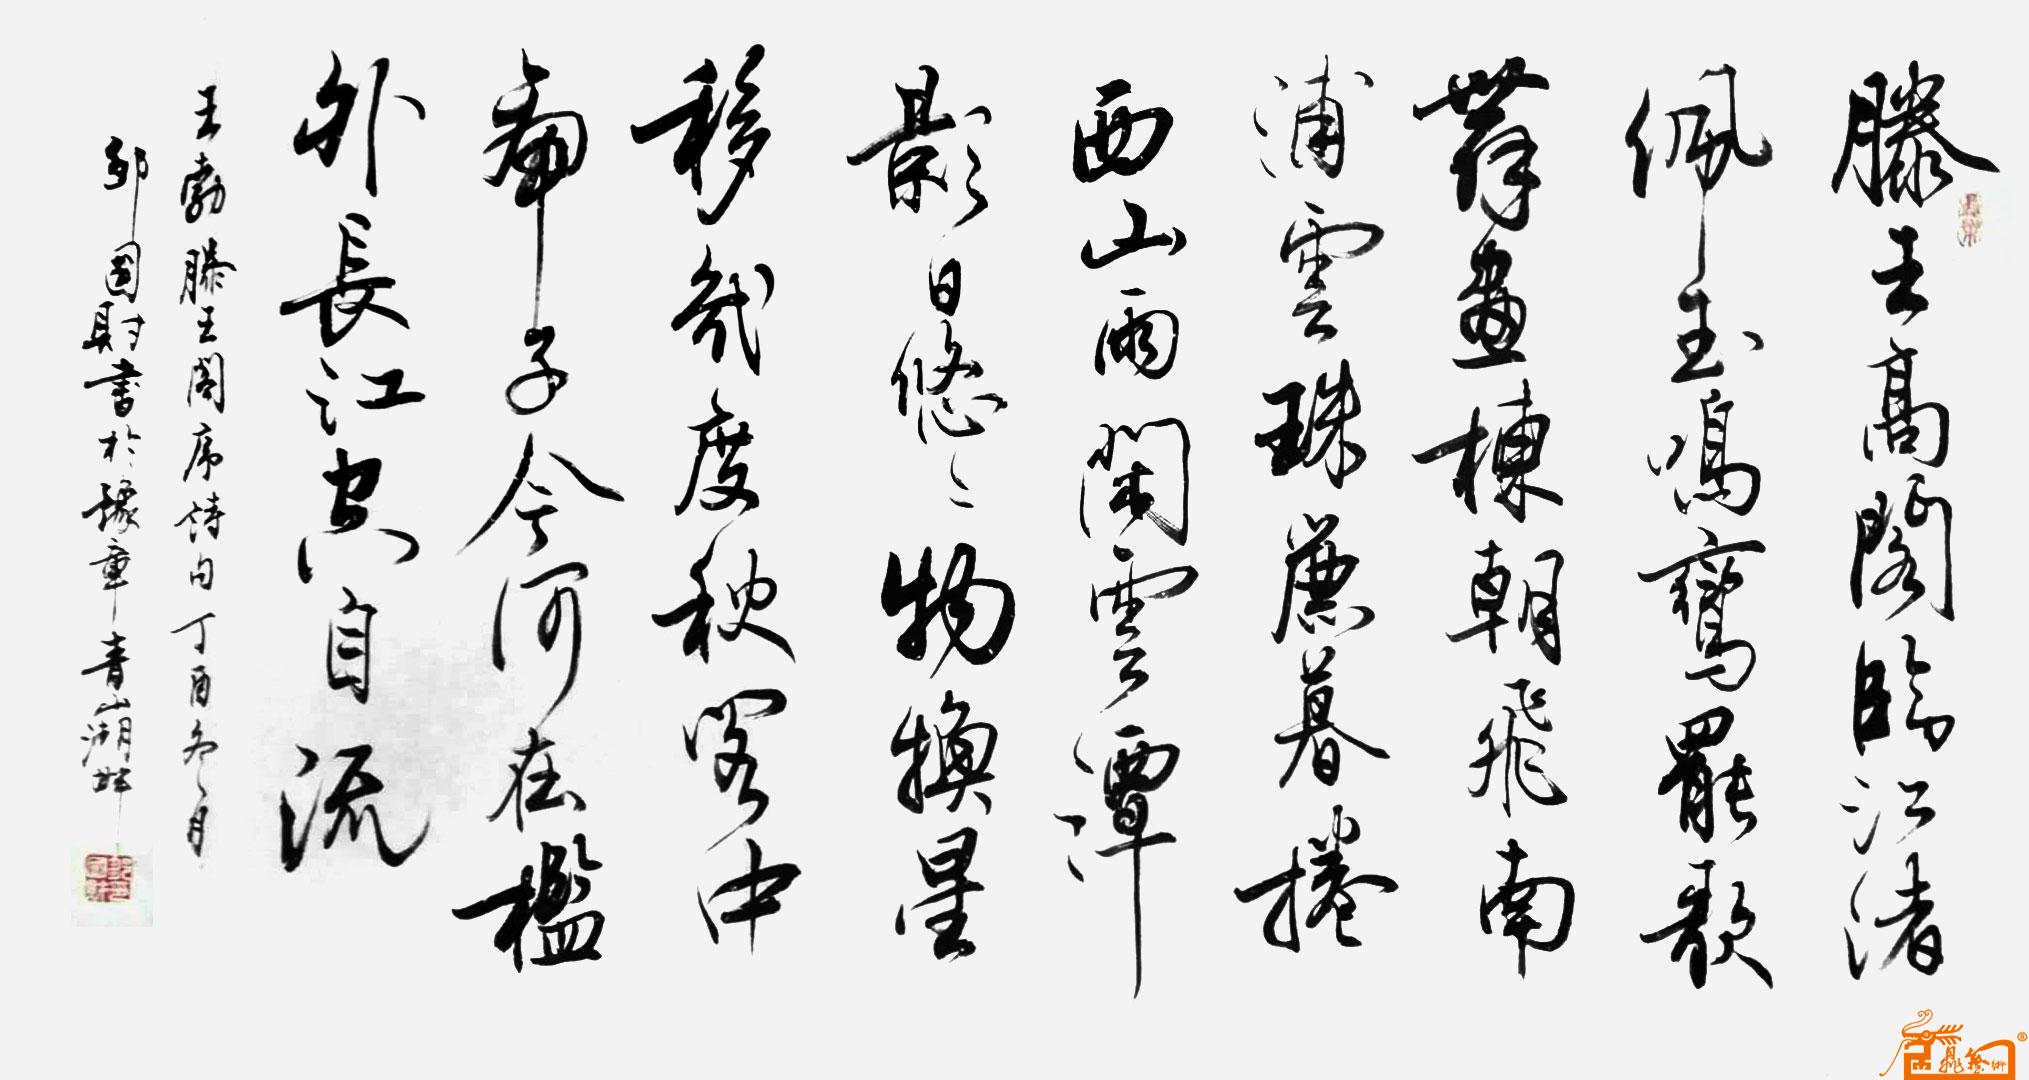 滕王高閣臨江渚
佩玉鳴鸞罷歌
舞畫棟朝飛南
浦雲珠簾暮捲
西山雨閑雲潭
影日悠々物換星
移幾度秋閣中
帝子今何在檻
外長江空自流
王勃滕王閣序詩句丁酉冬月
邹國財書於豫章青山湖畔